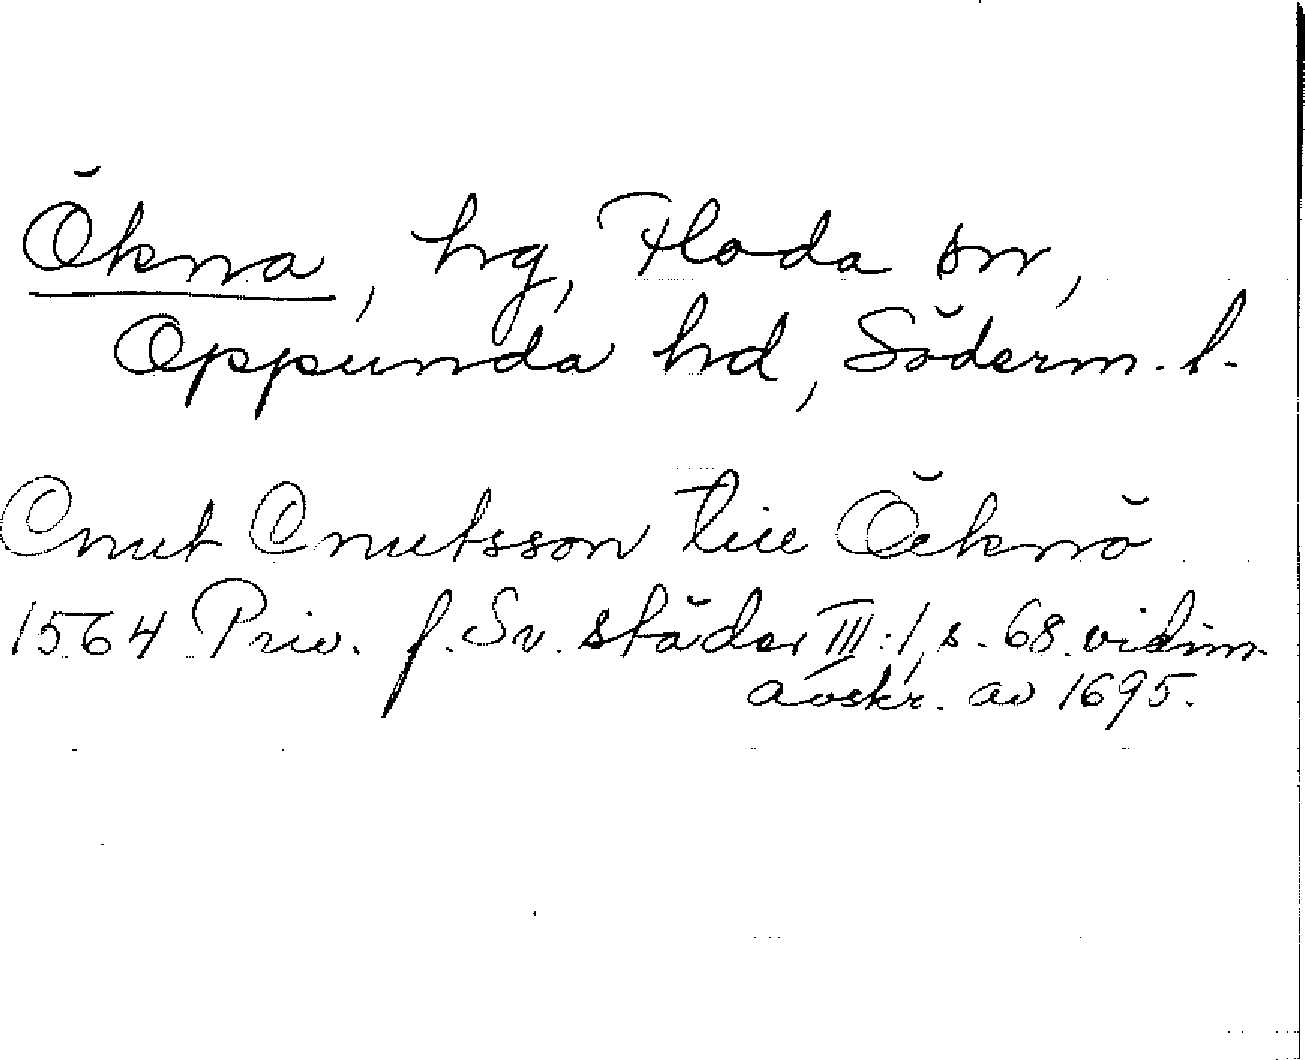 Ökna, hg, Floda sn,
Oppunda hd, Söderm. l.
Cnut Cnutsson till Öeknö
1564 Priv. f. Sv. städer III:1, s. 68. vidim.
avskr. av 1695.